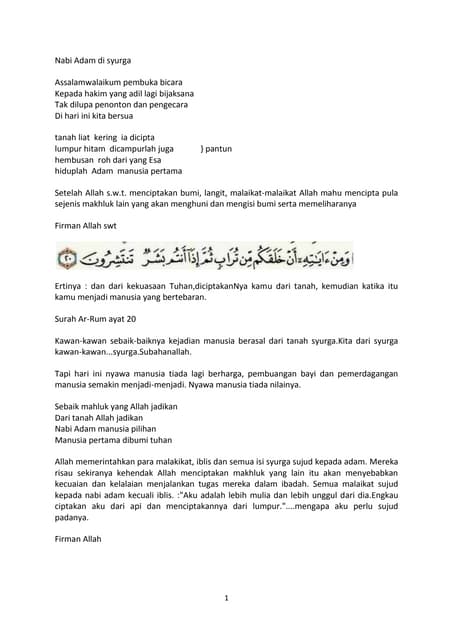 Nabi Adam di syurga
Assalamwalaikum pembuka bicara
Kepada hakim yang adil lagi bijaksana
Tak dilupa penonton dan pengecara
Di hari ini kita bersua
tanah liat kering ia dicipta
lumpur hitam dicampurlah juga } pantun
hembusan roh dari yang Esa
hiduplah Adam manusia pertama
Setelah Allah s.w.t. menciptakan bumi, langit, malaikat-malaikat Allah mahu mencipta pula
sejenis makhluk lain yang akan menghuni dan mengisi bumi serta memeliharanya
Firman Allah swt
وَمِنْ ءَايَـٰتِهِۦٓ أَنْ خَلَقَكُم مِّن تُرَابٍ ثُمَّ إِذَآ أَنتُم بَشَرٌ تَنتَشِرُونَ ٢٠
Ertinya : dan dari kekuasaan Tuhan,diciptakanNya kamu dari tanah, kemudian katika itu
kamu menjadi manusia yang bertebaran.
Surah Ar-Rum ayat 20
Kawan-kawan sebaik-baiknya kejadian manusia berasal dari tanah syurga.Kita dari syurga
kawan-kawan...syurga.Subahanallah.
Tapi hari ini nyawa manusia tiada lagi berharga, pembuangan bayi dan pemerdagangan
manusia semakin menjadi-menjadi. Nyawa manusia tiada nilainya.
Sebaik mahluk yang Allah jadikan
Dari tanah Allah jadikan
Nabi Adam manusia pilihan
Manusia pertama dibumi tuhan
Allah memerintahkan para malakikat, iblis dan semua isi syurga sujud kepada adam. Mereka
risau sekiranya kehendak Allah menciptakan makhluk yang lain itu akan menyebabkan
kecuaian dan kelalaian menjalankan tugas mereka dalam ibadah. Semua malaikat sujud
kepada nabi adam kecuali iblis. :"Aku adalah lebih mulia dan lebih unggul dari dia.Engkau
ciptakan aku dari api dan menciptakannya dari lumpur."....mengapa aku perlu sujud
padanya.
Firman Allah
1